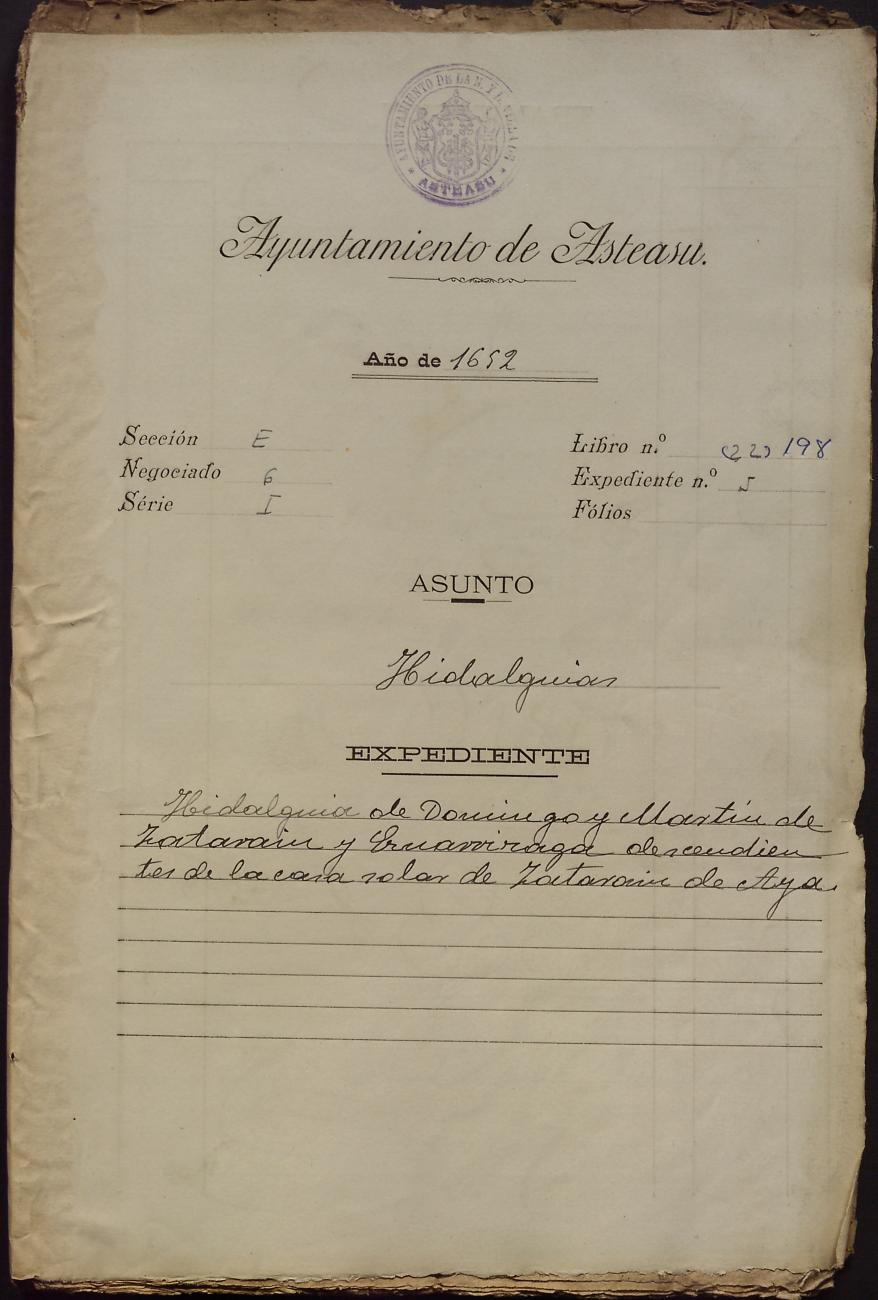 AYUNTAMIENTO DE LA N. Y L. VILLA DE
ASTEASU
Ayuntamiento de Asteasu.
Año de 1652
Sección E
Negociado 6
Série I
Libro n.º (22) 198
Expediente n.º 5
Fólios
ASUNTO
Hidalguias
EXPEDIENTE
Hidalguia de Domingo y Martín de
Zatarain y descendien
tes de la casa solar de Zatarain de Aya.